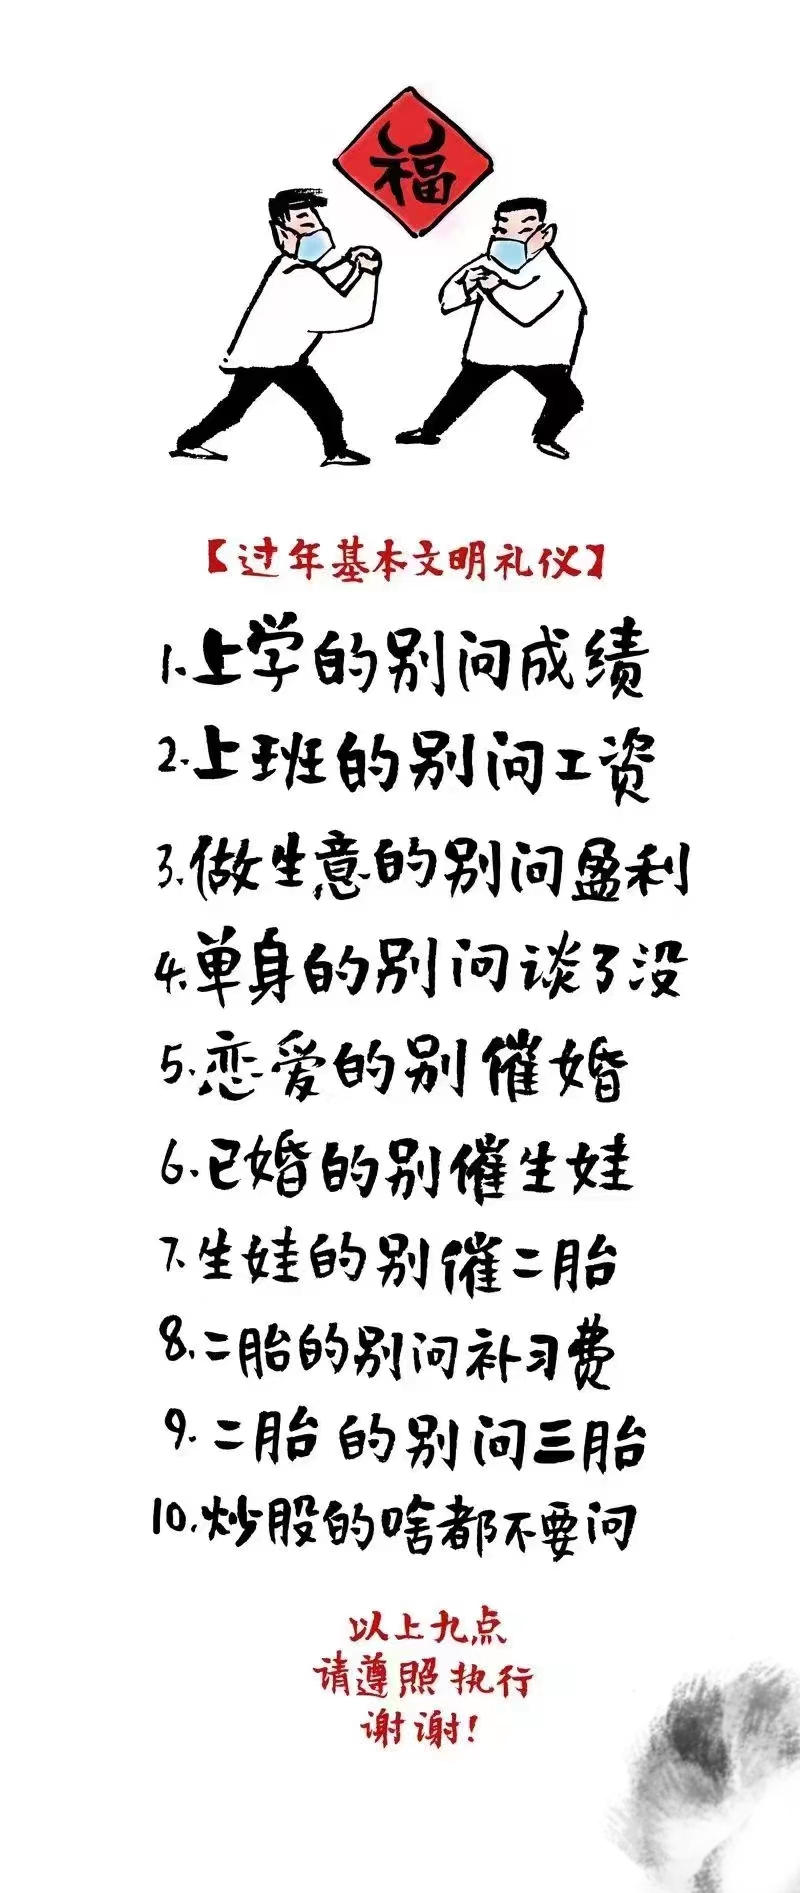 福
【过年基本文明礼仪】
1.上学的别问成绩
2.上班的别问工资
3.做生意的别问盈利
4.单身的别问谈了没
5.恋爱的别催婚
6.已婚的别催生娃
7.生娃的别催二胎
8.二胎的别问补习费
9.二胎的别问三胎
10.炒股的啥都不要问
以上九点
请遵照执行
谢谢!